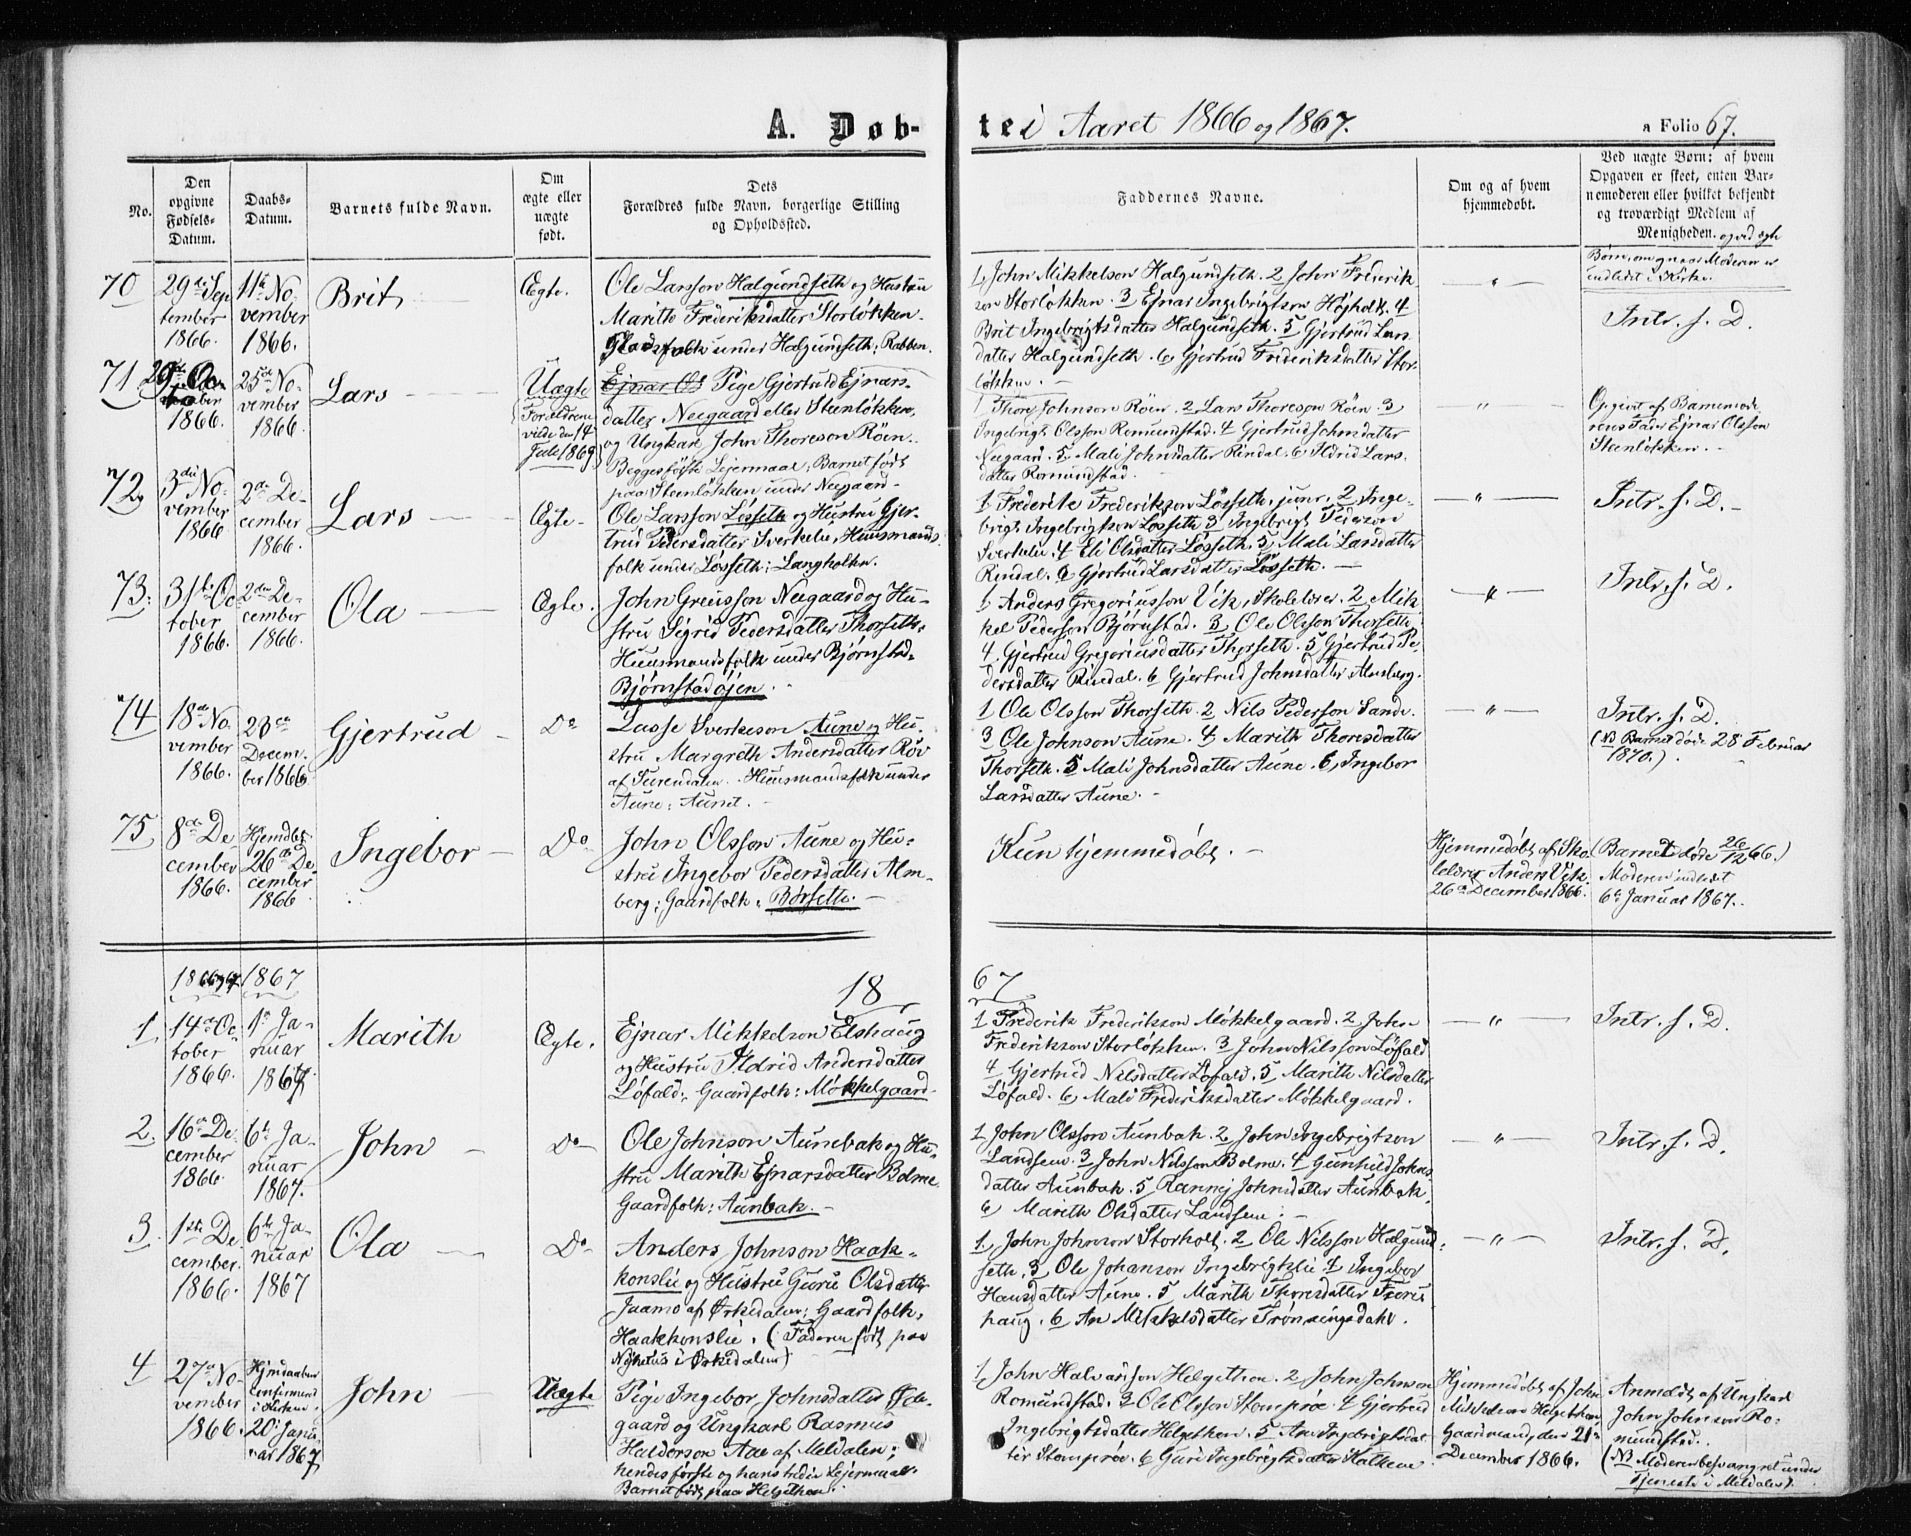 A. Døb-
te i Aaret 1866 og 1867.
a Folio 67.
No.
Den opgivne Fødsels-Datum.
Daabs-Datum.
Barnets fulde Navn.
Om ægte eller uægte født.
Dets
Forældres fulde Navn, borgerlige Stilling
og Opholdssted.
Faddernes Navne.
Om og af hvem
hjemmedøbt.
Ved uægte Børn: af hvem
Opgaven er skeet, enten Bar-
nemoderen eller hvilket bekjendt
og troværdigt Medlem af
Menigheden. og ved ægte
Børn, om gnaar Moderen er
indledet i Kirke.
70
29de Sep
tember
1866.
11te No
vember
1866.
Brit
Ægte.
Ole Larsson Halgundseth og Hustru
Marith Frederiksdatter Storløkken.
Pladsfolk under Halgundseth: Rabben.
1 John Mikkelson Halgundseth. 2 John Frederik
son Storløkken. 3 Ejnar Ingebrigtson Høgholt. 4
Brit Ingebrigtsdatter Halgundseth. 5 Gjertrud Lars
datter Halgundseth. 6 Gjertrud Frederiksdatter Stor-
løkken. -
- " -
Intr. s. D.
71
1866.
25de No
vember
1866.
Lars
Uægte
(Forældrene
viede den 14
Juli 1869)
Ejnar Ols Pige Gjertrud Ejnars-
datter Neegaard eller Steenløkken,
og Ungkarl John Thoreson Røen.
Begges første Lejermaal; Barnet født
paa Steenløkken under Neegaard -
1 Thore Johnson Røen. 2 Lars Thoreson Røen. 3
Ingebrigt Olsson Romundstad. 4 Gjertrud Johnsdatter
Neegaard. 5 Mali Johnsdatter Rindal. 6 Ildrid Lars-
datter Romundstad.
- " -
Opgivet af Barnemode
rens Fader Ejnar Olsson
Steenløkken. -
72
3die No-
vember
1866
2den De-
cember
1866.
Lars
Ægte -
Ole Larsson Løsseth og Hustru Gjer-
trud Pedersdatter Sverkelie, Huusmands
folk under Løsseth: Langholtn.
1 Frederik Frederikson Løsseth, junr. 2 Inge-
brigt Ingebrigtson Løsseth 3 Ingebrigt Pederson
Sverkelie. 4 Eli Olsdatter Løsseth. 5 Mali Larsdatter
Rindal. 6 Gjertrud Larsdatter Løsseth. -
- " -
Intr. s. D. -
73.
31te Oc
tober
1866.
2den De-
cember
1866.
Ola
Ægte.
John Greusson Neegaard og Hu-
stru Sigrid Pedersdatter Thorseth.
Huusmandsfolk under Bjørnstad.
Bjørnstadøjen.
1 Anders Gregoriusson Vik, Skolelærer. 2 Mik
kel Pederson Bjørnstad. 3 Ole Olsson Thorseth.
4. Gjertrud Gregoriusdatter Thorseth. 5 Gjertrud Pe-
dersdatter Rindal. 6 Gjertrud Johnsdatter Almberg.
- " -
Intr. s. D.
74
18de No
vember
1866.
23de
Decem-
ber 1866
Gjertrud
Do
Lasse Sverkeson Aune og Hu-
stru Margreth Andersdatter Røv
af Surendalen. Huusmandsfolk under
Aune: Aunet. -
1 Ole Olsson Thorseth. 2 Nils Pederson Sande.
3 Ole Johnson Aune. 4 Marith Thorsdatter
Thorseth. 5 Mali Johnsdatter Aune. 6, Ingebor
Larsdatter Aune. -
- " -
Intr. s. D.
(NB Barnet døde 28 Februar
1870.)
75
8de De
cember
1866.
Hjemdøbt
26de De
cember
1866
Ingebor
Do
John Olsson Aune og Hu-
stru Ingebor Pedersdatter Alm-
berg: Gaardfolk: Børseth. -
Kun hjemmedøbt. -
Hjemmedøbt af Sko-
lelærer Anders Vik.
26de December 1866.
(Barnet døde 26/12 66.)
Moderen indledet
6te Januar 1867.
1866 67
1867
18
67
1
14de Oc
tober
1866.
1ste Ja-
nuar
1867
Marith
Ægte.
Ejnar Mikkelson Elshaug
og Hustru Ildrid Andersdatter
Løfald: Gaardfolk: Møkkelgaard
1 Frederik Frederikson Møkkelgaard. 2 John
Frederikson Storløkken. 3 John Nilsson Løfald
4 Gjertrud Nilsdatter Løfald. 5 Marith Nilsdatter
Løfald. 6 Mali Frederiksdatter Møkkelgaard.
- " -
Intr. s. D.
2.
16de De
cember
1866
6te Ja-
nuar
1867.
John
Do
Ole Johnson Aunebak og Hu-
stru Marith Ejnarsdatter Bolme
Gaardfolk: Aunbak. -
1 John Olsson Aunbak. 2 John Ingebrigtson
Landsem. 3 John Nilsson Bolme. 4 Gunhild Johns
datter Aunbak. 5 Rannej Johnsdatter Aunbak.
6 Marith Olsdatter Landsem. -
- " -
Intr. s. D.
3.
1ste De
cember
1866.
6te Ja-
nuar
1867
Ola
Do
Anders Johnson Haak-
konslie og Hustru Guru Olsdatter
Jaamo af Ørkedalen: Gaardfolk.
Haakkonslie. (Faderen født paa
Nyhuus i Ørkedalen)
1 John Johnson Storholt. 2 Ole Nilsson Halgund-
seth. 3 Ole Johanson Ingebrigtslie. 4 Ingebor
Hansdatter Aune. 5 Marith Thoresdatter Furu
haug. 6 An Mikkelsdatter Trønningsdahl.
- " -
Intr. s. D.
4
27de No
vember
1866.
Hjemdaaben
confirmered
i Kirken
20 Janu
ar 1867
John
Uægte
Pige Ingebor Johnsdatter Øde-
gaard og Ungkarl Rasmus
Haldorson Aae af Meldalen;
hendes første og hans tredie Lejermaal.
Barnet født paa Helgethen.
1 John Halvarsson Helgethen. 2 John Johnson
Romundstad. 3 Ole Olsson Stomprøe. 4 Gjertrud
Ingebrigtsdatter Helgethen. 5 Ane Ingebrigtsdat
ter Stomprøe. 6 Guri Ingebrigtsdatter Haltlie.
Hjemmedøbt af John
Mikkelson Helgethen,
Gaardmand, den 21de
December 1866.
Anmeldt af Ungkarl
John Johnson Ro-
mundstad.
(NB Moderen besvangret under
Tjeneste i Meldalen).